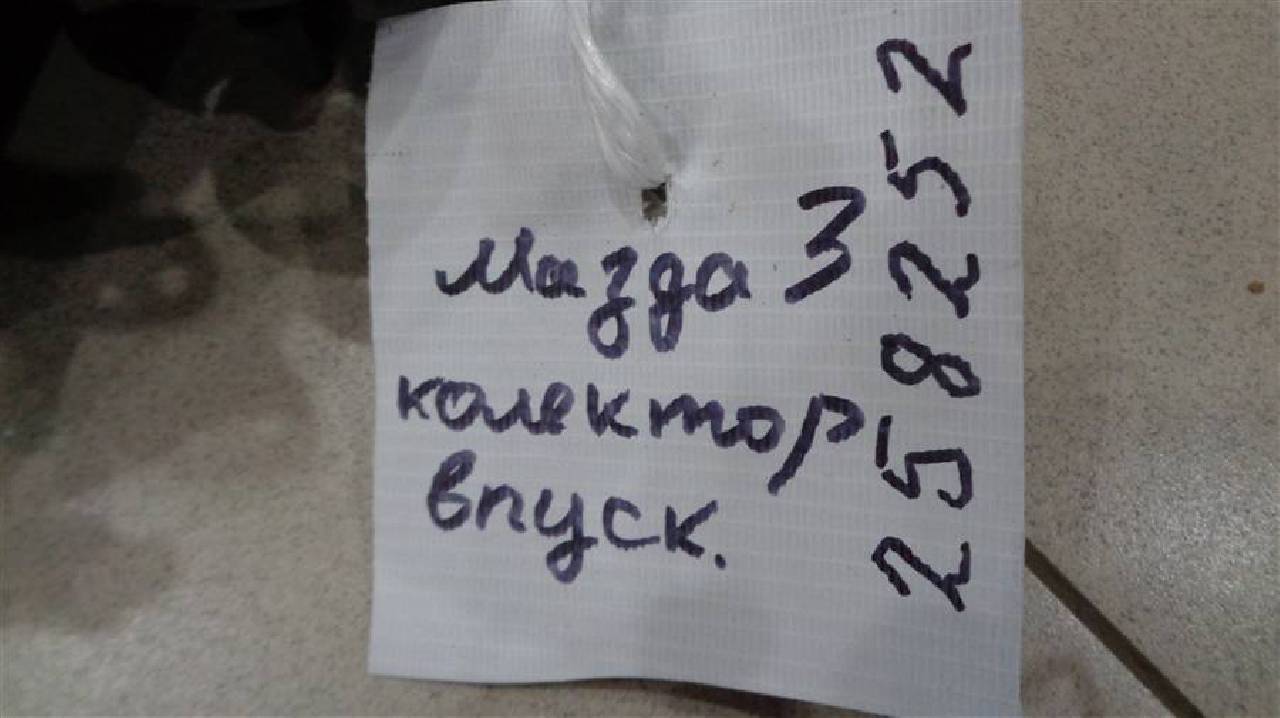 Мазда 3
колектор
впуск.
258252